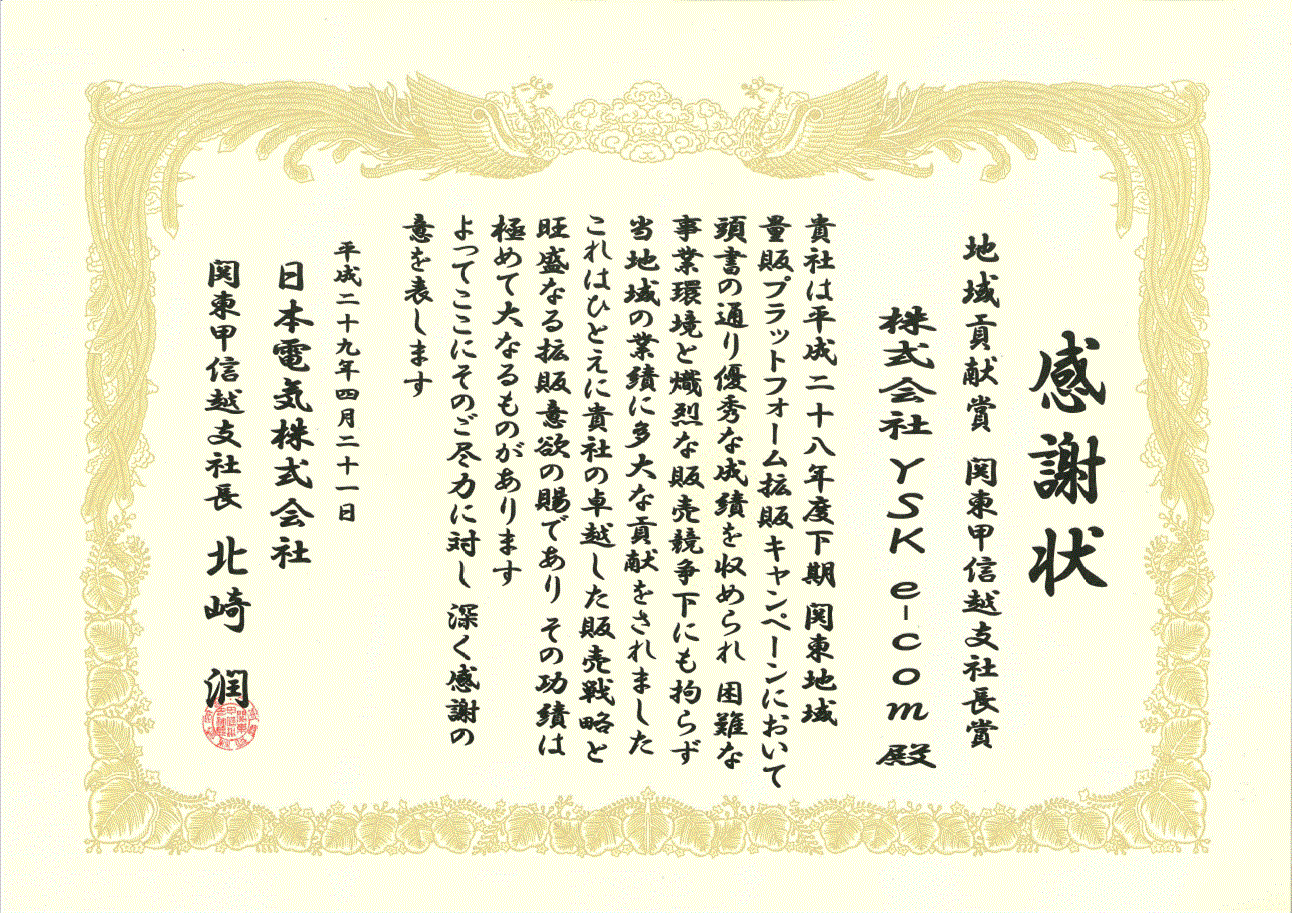 感謝状
地域貢献賞 関東甲信越支社長賞
株式会社 YSK e-com 殿
貴社は平成二十八年度下期 関東地域
量販プラットフォーム拡販キャンペーンにおいて
頭書の通り優秀な成績を収められ 困難な
事業環境と熾烈な販売競争下にも拘らず
当地域の業績に多大な貢献をされました
これはひとえに貴社の卓越した販売戦略と
旺盛なる拡販意欲の賜であり その功績は
極めて大なるものがあります
よってここにそのご尽力に対し 深く感謝の
意を表します
平成二十九年四月二十一日
日本電気株式会社
関東甲信越支社長 北崎 潤